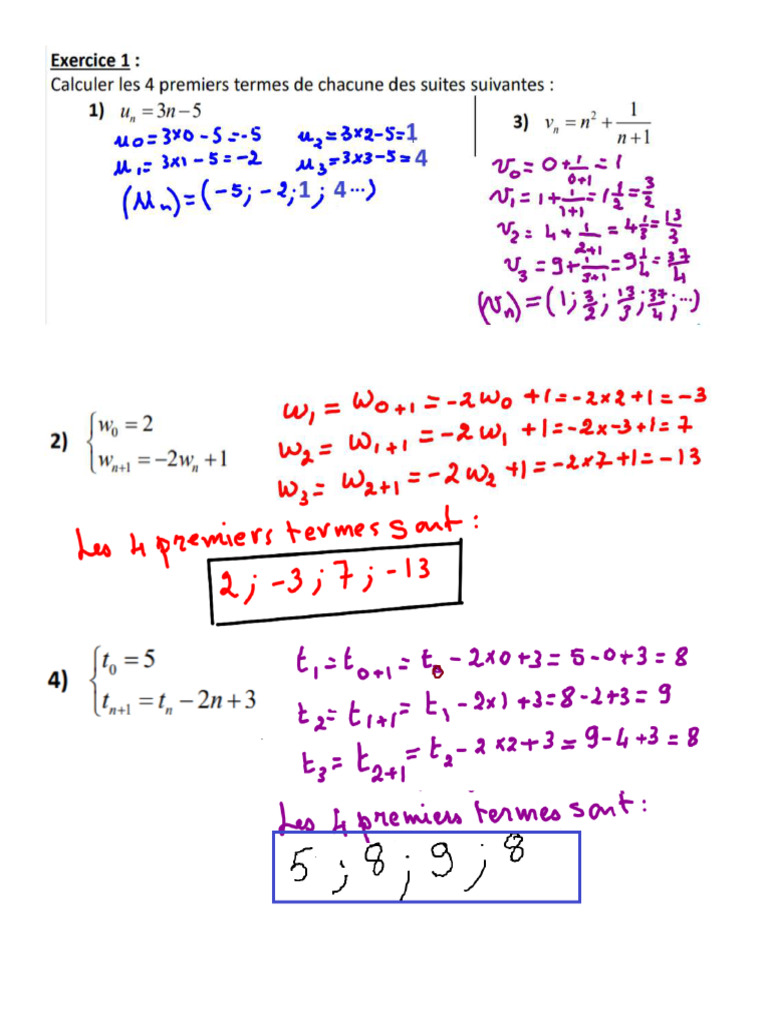 Exercice 1 :
Calculer les 4 premiers termes de chacune des suites suivantes :
1) uₙ = 3n − 5
u₀ = 3×0 − 5 = −5
u₁ = 3×1 − 5 = −2
u₂ = 3×2 − 5 = 1
u₃ = 3×3 − 5 = 4
(uₙ) = (−5 ; −2 ; 1 ; 4 ...)
3) vₙ = n² + 1/(n+1)
v₀ = 0 + 1/(0+1) = 1
v₁ = 1 + 1/(1+1) = 1 1/2 = 3/2
v₂ = 4 + 1/(2+1) = 4 1/3 = 13/3
v₃ = 9 + 1/(3+1) = 9 1/4 = 37/4
(vₙ) = (1 ; 3/2 ; 13/3 ; 37/4 ; ...)
2) { w₀ = 2
wₙ₊₁ = −2wₙ + 1
w₁ = w₀₊₁ = −2w₀ + 1 = −2×2 + 1 = −3
w₂ = w₁₊₁ = −2w₁ + 1 = −2×−3 + 1 = 7
w₃ = w₂₊₁ = −2w₂ + 1 = −2×7 + 1 = −13
Les 4 premiers termes sont :
2 ; −3 ; 7 ; −13
4) { t₀ = 5
tₙ₊₁ = tₙ − 2n + 3
t₁ = t₀₊₁ = t₀ − 2×0 + 3 = 5 − 0 + 3 = 8
t₂ = t₁₊₁ = t₁ − 2×1 + 3 = 8 − 2 + 3 = 9
t₃ = t₂₊₁ = t₂ − 2×2 + 3 = 9 − 4 + 3 = 8
Les 4 premiers termes sont :
5 ; 8 ; 9 ; 8